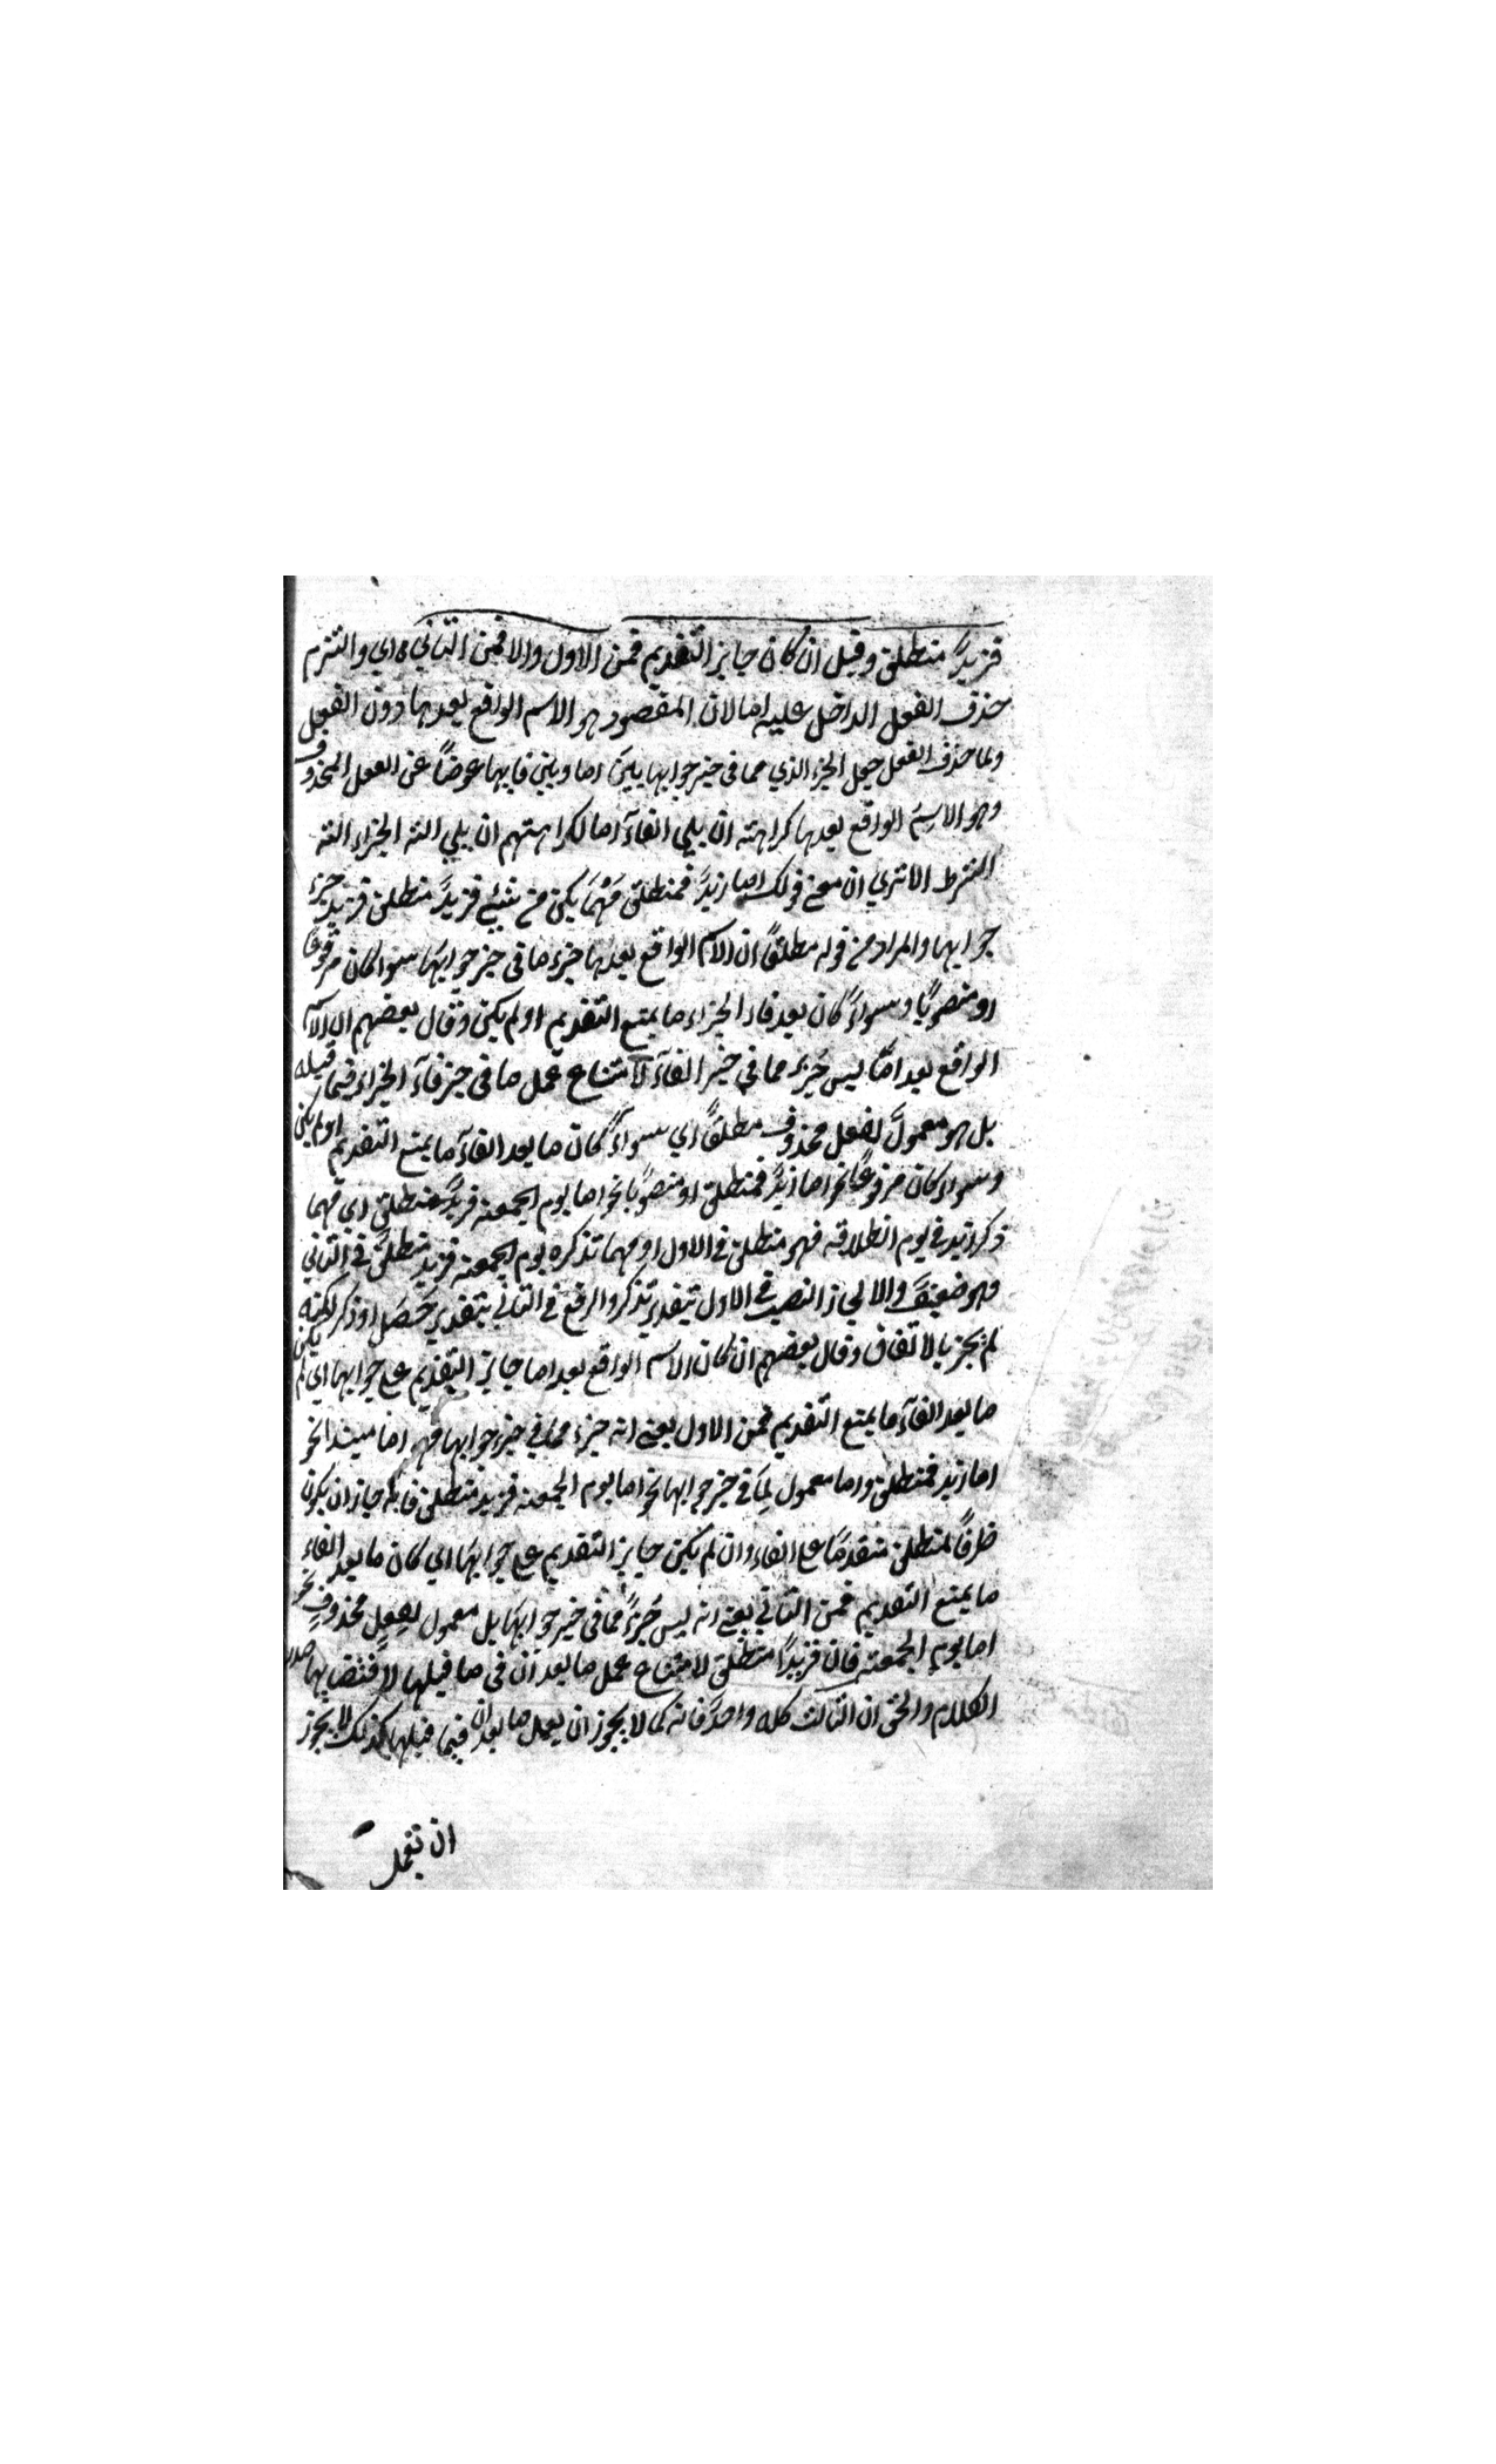 فزيد منطلق وقيل ان كان جايز التقديم فمن الاول والا فمن الثاني اي والتزم
حذف الفعل الداخل عليه اما لان المقصود هو الاسم الواقع بعدها دون الفعل
ولما حذف الفعل جعل الجزء الذي مما في حيز جوابها بين اما وبين فايها عوضاً عن الفعل المحذوف
وهو الاسم الواقع بعدها كراهته ان يلي الفآء اما لكراهتهم ان يلي الفه الجزاء الفه
الشرط الا تري ان معني قولك اما زيدٌ فمنطلق مَهْمَا يكن من شئ فزيدٌ منطلق فزيد جزء
جوابها والمراد من قوله مطلقاً ان الاسم الواقع بعدها جزء ما في حيز جوابها سوا كان مرفوعاً
او منصوباً وسواءً كان بعد فاء الجزاء ما يمنع التقديم او لم يكن وقال بعضهم ان الاسم
الواقع بعد امّا ليس جُزء مما في حيز الفآء لامتناع عمل ما في حيز فآء الجزاء فيما قبله
بل هو معمولٌ لفعل محذوف مطلقاً اي سواءً كان ما بعد الفآء ما يمنع التقديم او لم يكن
وسواء كان مرفوعاً نحو اما زيدٌ فمنطلق او منصوباً نحو اما يوم الجمعه فزيدٌ منطلق اي مهما
ذكر زيد في يوم انطلاقه فهو منطلق في الاول او مهما تذكره يوم الجمعه فزيد منطلقٌ في الثاني
وهو ضعيفٌ والا لجاز النصب في الاول بتقدير تذكر والرفع في الثاني بتقدير حَصَل او ذكر لكنه
لم يجز بالاتفاق وقال بعضهم ان كان الاسم الواقع بعد اما جايز التقديم علي جوابها اي لم يكن
ما بعد الفآء ما يمنع التقديم فمن الاول يعني انه جزء مما في حيز جوابها فهو اما مبتدا نحو
اما زيد فمنطلق واما معمول لِمَا في حيز جوابها نحو اما يوم الجمعه فزيد منطلق فانه جاز ان يكون
ظرفاً لمنطلق متقدماً علي الفاء وان لم يكن جايز التقديم علي جوابها اي كان ما بعد الفاء
ما يمنع التقديم فمن الثاني يعني انه ليس جُزءً مما في حيز جوابها بل معمول لفعلٍ محذوفٍ نحو
اما يوم الجمعه فان زيداً منطلق لامتناع عمل ما بعد ان في ما قبلها لاقتضايها صدر
الكلام والحق ان الثالث كله واحدٌ فانه كما لا يجوز ان يعمل ما بعد ان فيما قبلها كذلك لا يجوز
ان تعمل